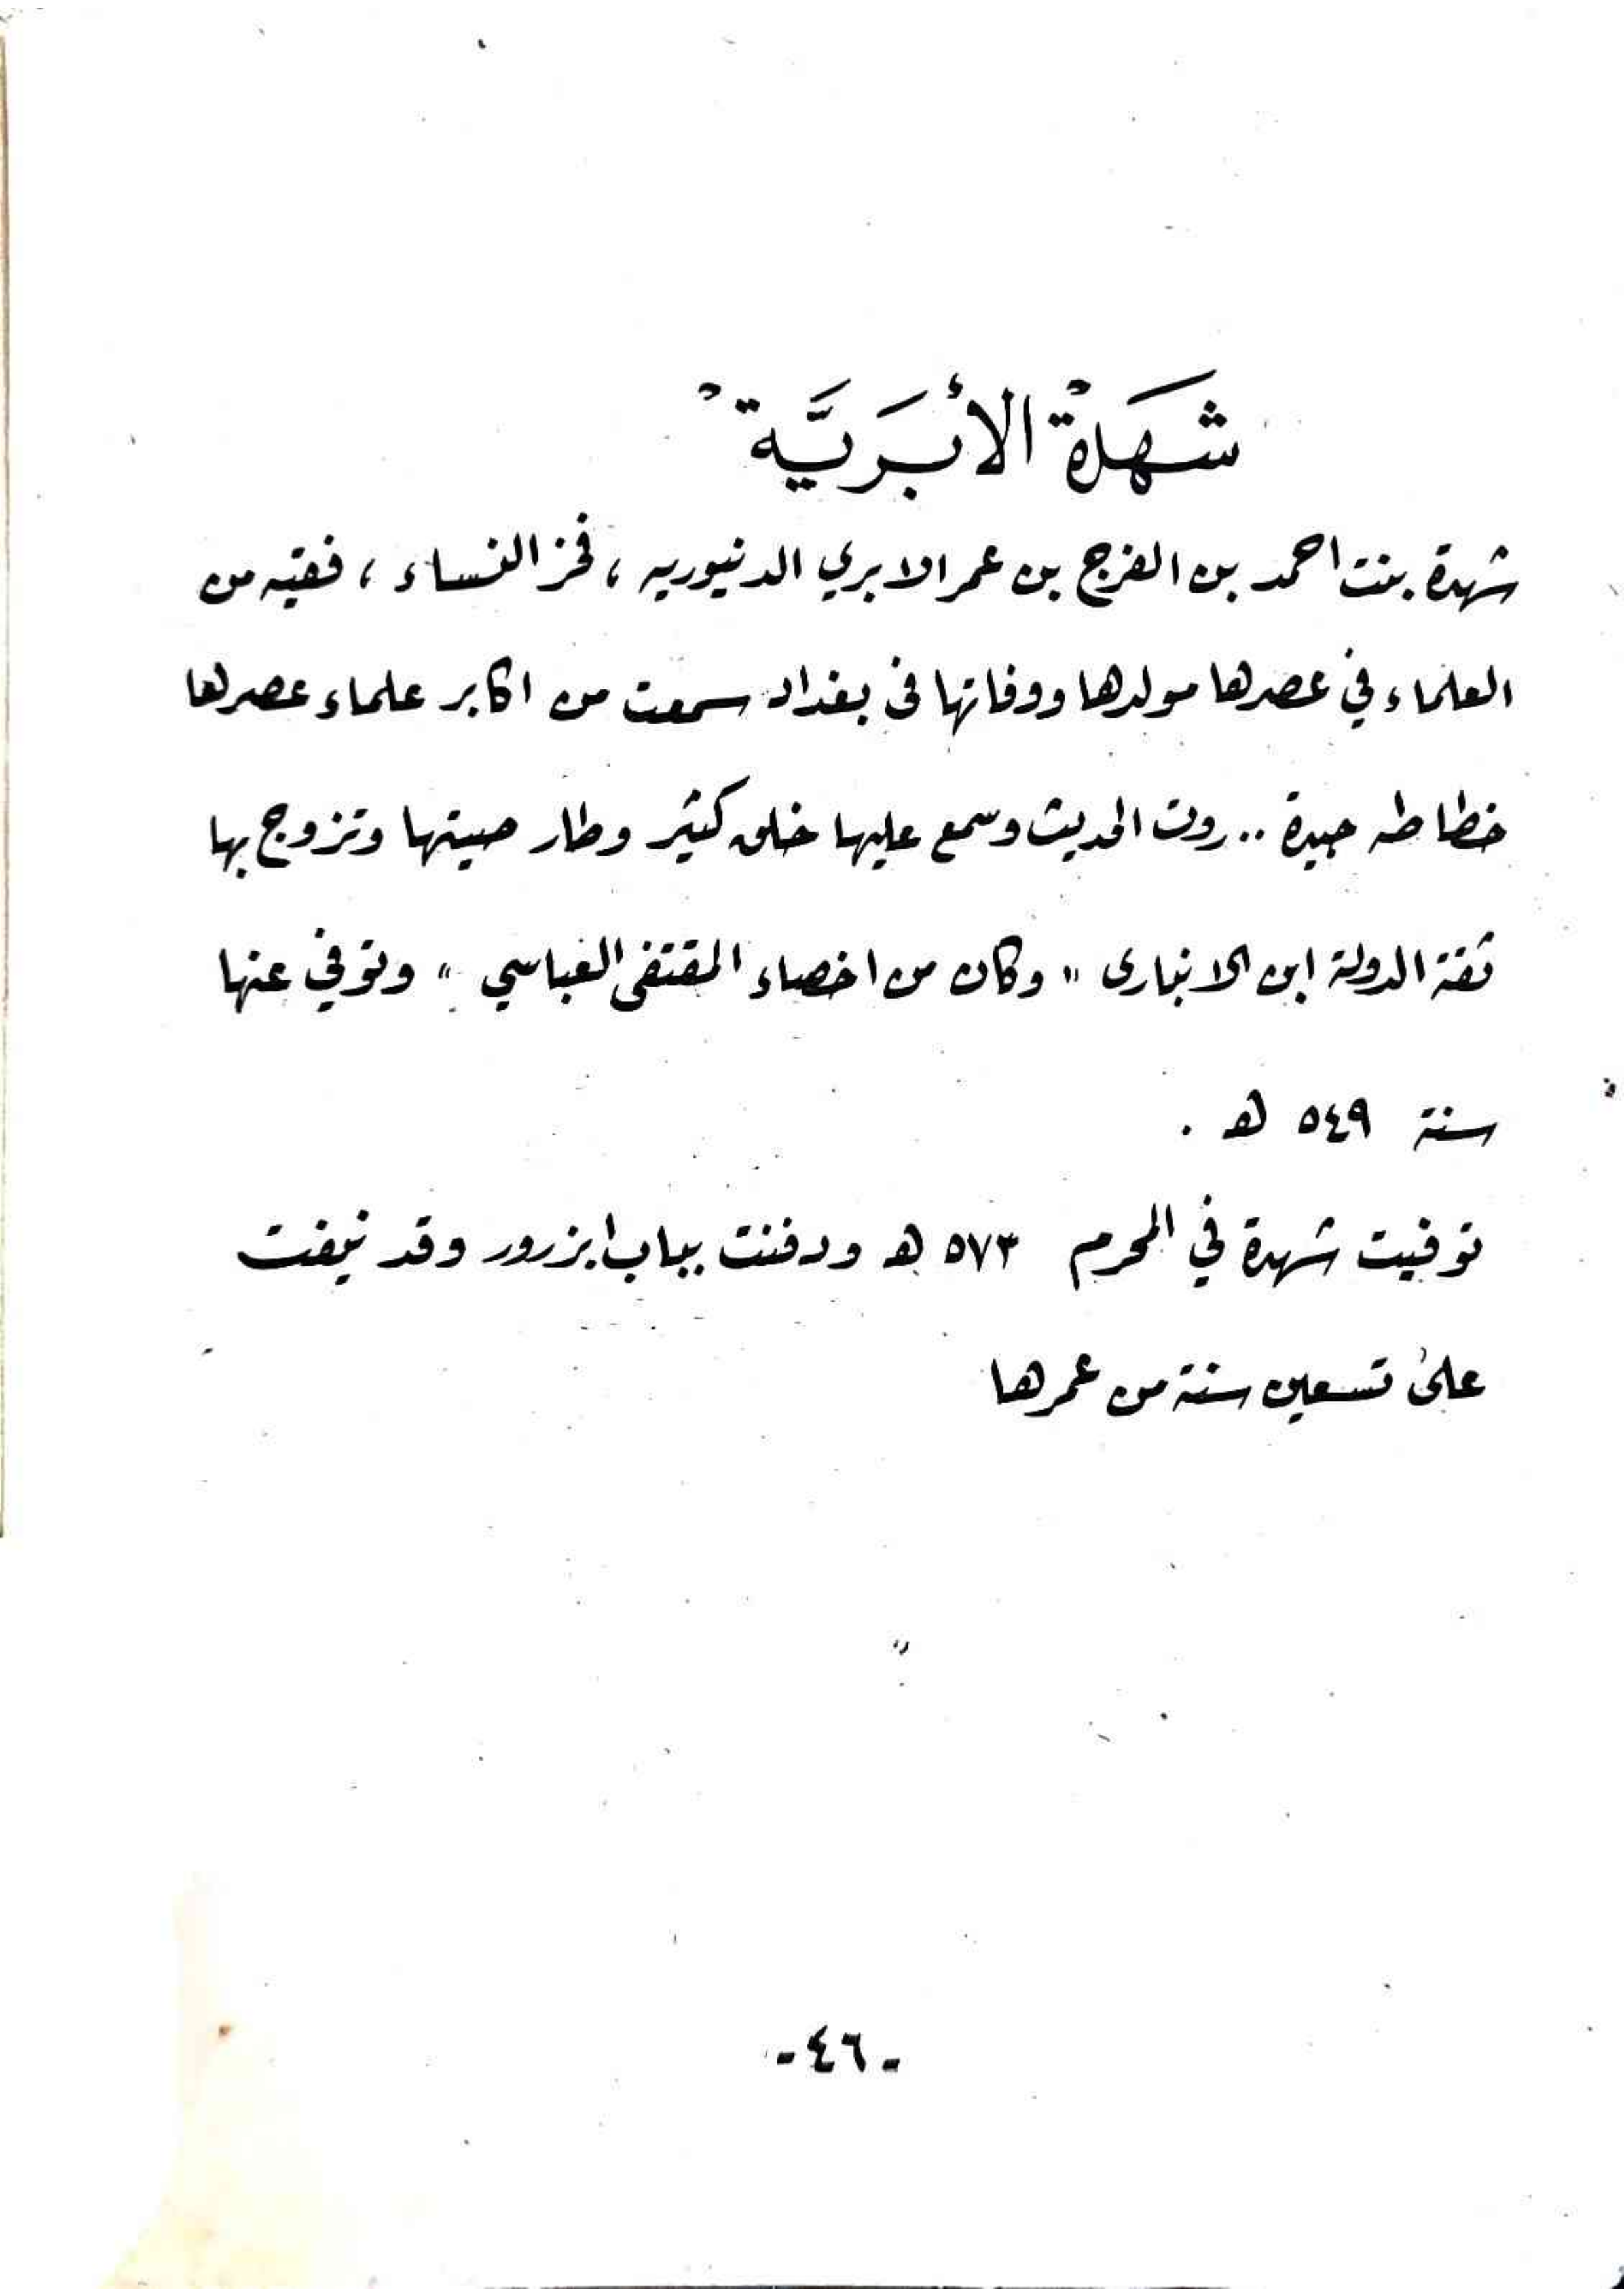 شَهْدَةْ الأَبَرِيَّةْ
شهدة بنت احمد بن الفرج بن عمر الابري الدنيوريه ، فخز النساء ، فقيه من
العلماء في عصرها مولدها ووفاتها فى بغداد سمعت من اكابر علماء عصرها
خطاطه جيدة .. روت الحديث وسمع عليها خلق كثير وطار صيتها وتزوج بها
ثقة الدولة ابن الانبارى " وكان من اخصاء المقتفى العباسي " وتوفي عنها
سنة ٥٤٩ هـ .
توفيت شهدة في المحرم ٥٧٣ هـ ودفنت بباب ابزرور وقد نيفت
على تسعين سنة من عمرها
-٤٦-